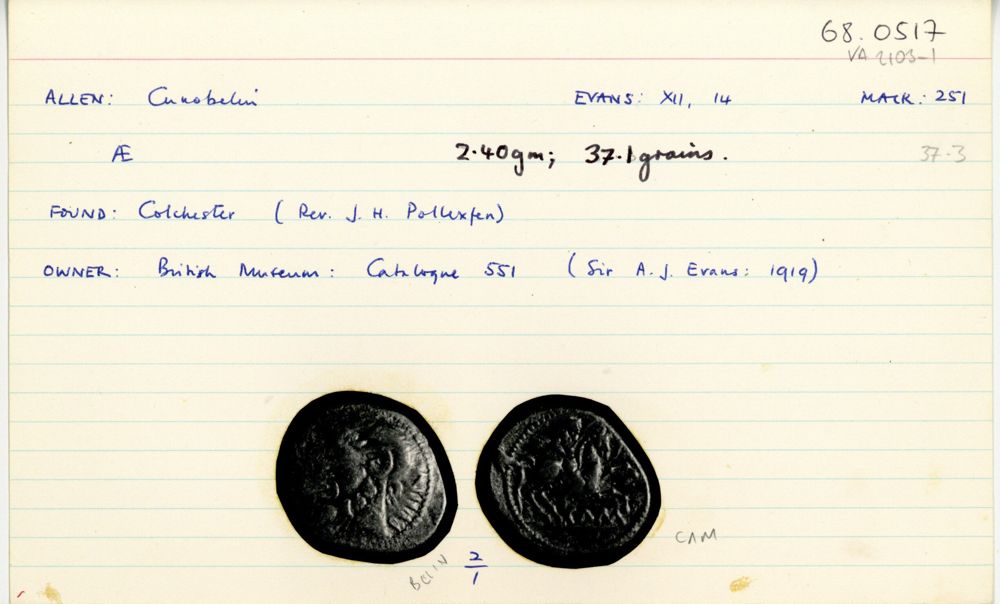 68.0517
VA 2103-1
ALLEN: Cunobelin EVANS: XII, 14 MACK: 251
Æ 2.40gm; 37.1 grains. 37.3
FOUND: Colchester (Rev. J. H. Pollexfen)
OWNER: British Museum: Catalogue 551 (Sir A. J. Evans: 1919)
CAM
BELIN 2/1 CAM